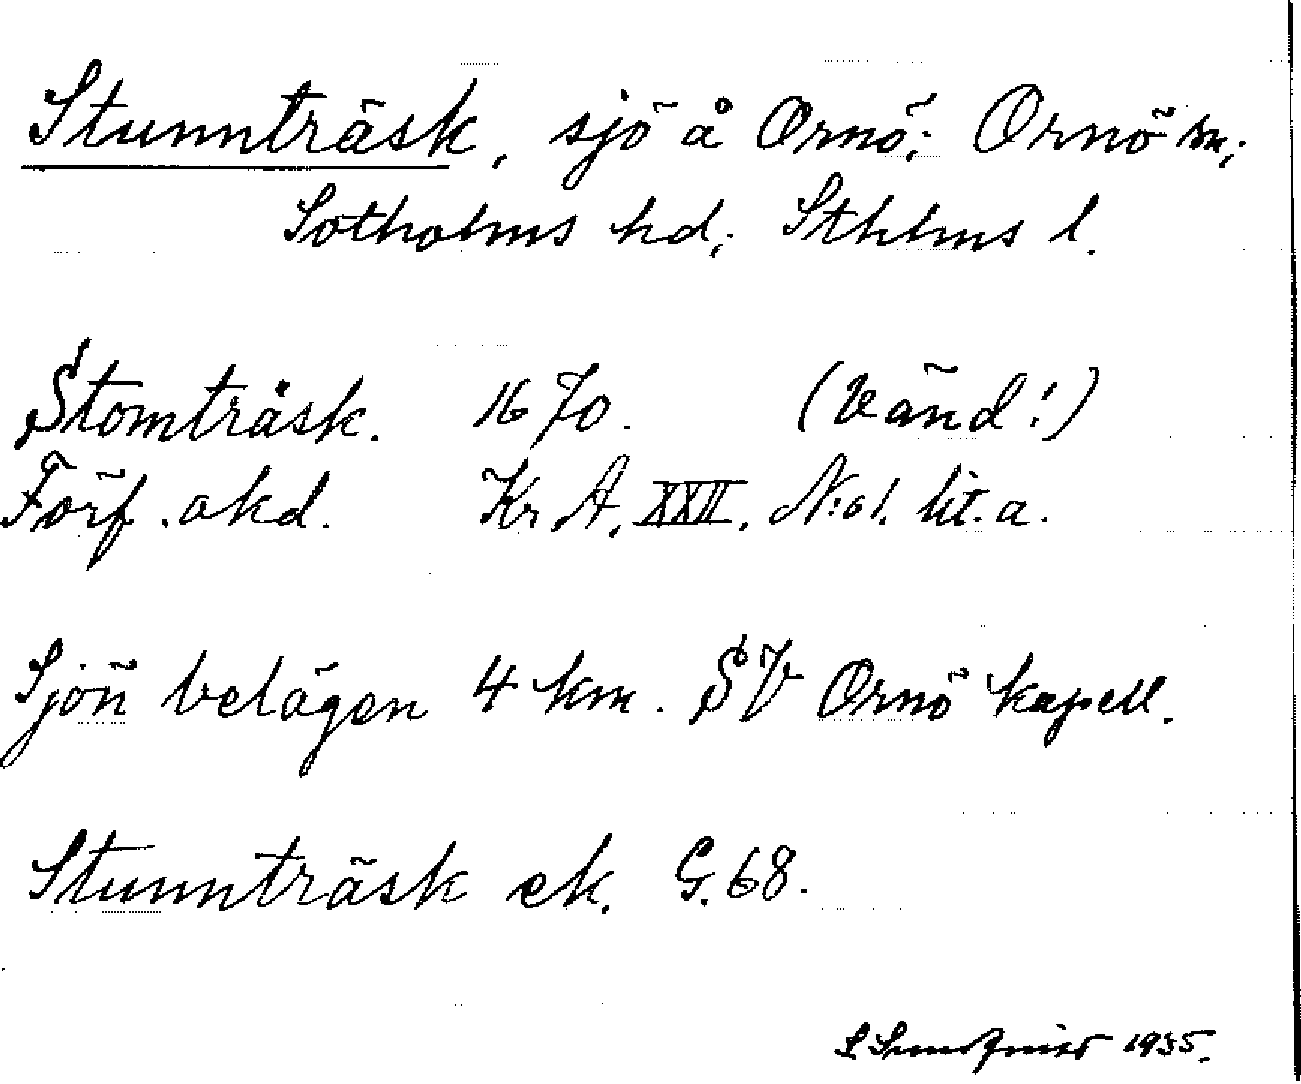 Stunnträsk, sjö å Ornö; Ornö sn;
Sotholms hd; Sthlms l.
Stomträsk. 1670. (Vänd!)
Förf. okd. Kr A. XXII. N:o 1. lit. a.
Sjön belägen 4 km. SV Ornö kapell.
Stunnträsk ek. G. 68.
1935.